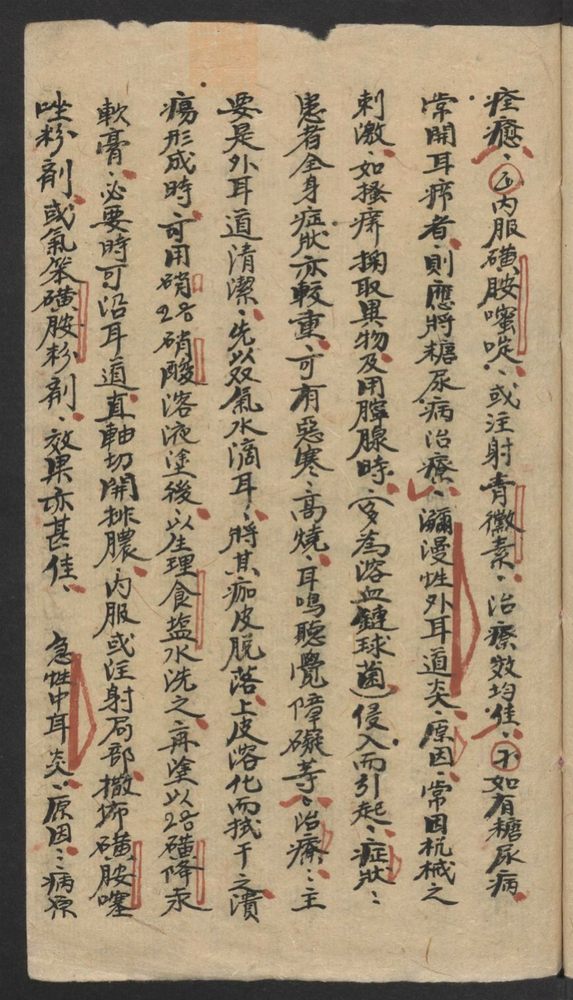 痊癒、㋄內服磺胺嘧啶、或注射青黴素、治療效均佳、㋅如有糖尿病、
常開耳癤者、則應將糖尿病治療、瀰漫性外耳道炎、原因、常因机械之
刺激、如搔癢掏取異物、及用膣腺時、(多為溶血鏈球菌)侵入而引起、症狀：
患者全身症狀亦較重、可有惡寒、高燒、耳鳴聽覺障礙等、治療：主
要是外耳道清潔、先以双氧水滴耳、將其痂皮脫落、上皮溶化而拭干之、潰
瘍形成時、可用硝2%硝酸溶液塗後、以生理食盐水洗之、再塗以2%磺降汞
軟膏、必要時可沿耳道直軸切開排膿、內服或注射局部、撒佈磺胺噻
唑粉劑、或氯笨磺胺粉劑、效果亦甚佳、 急性中耳炎：原因：病原